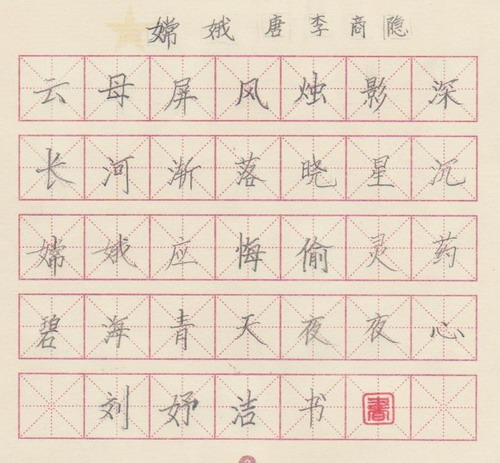 嫦娥 唐 李商隐
云母屏风烛影深
长河渐落晓星沉
嫦娥应悔偷灵药
碧海青天夜夜心
刘妤洁书